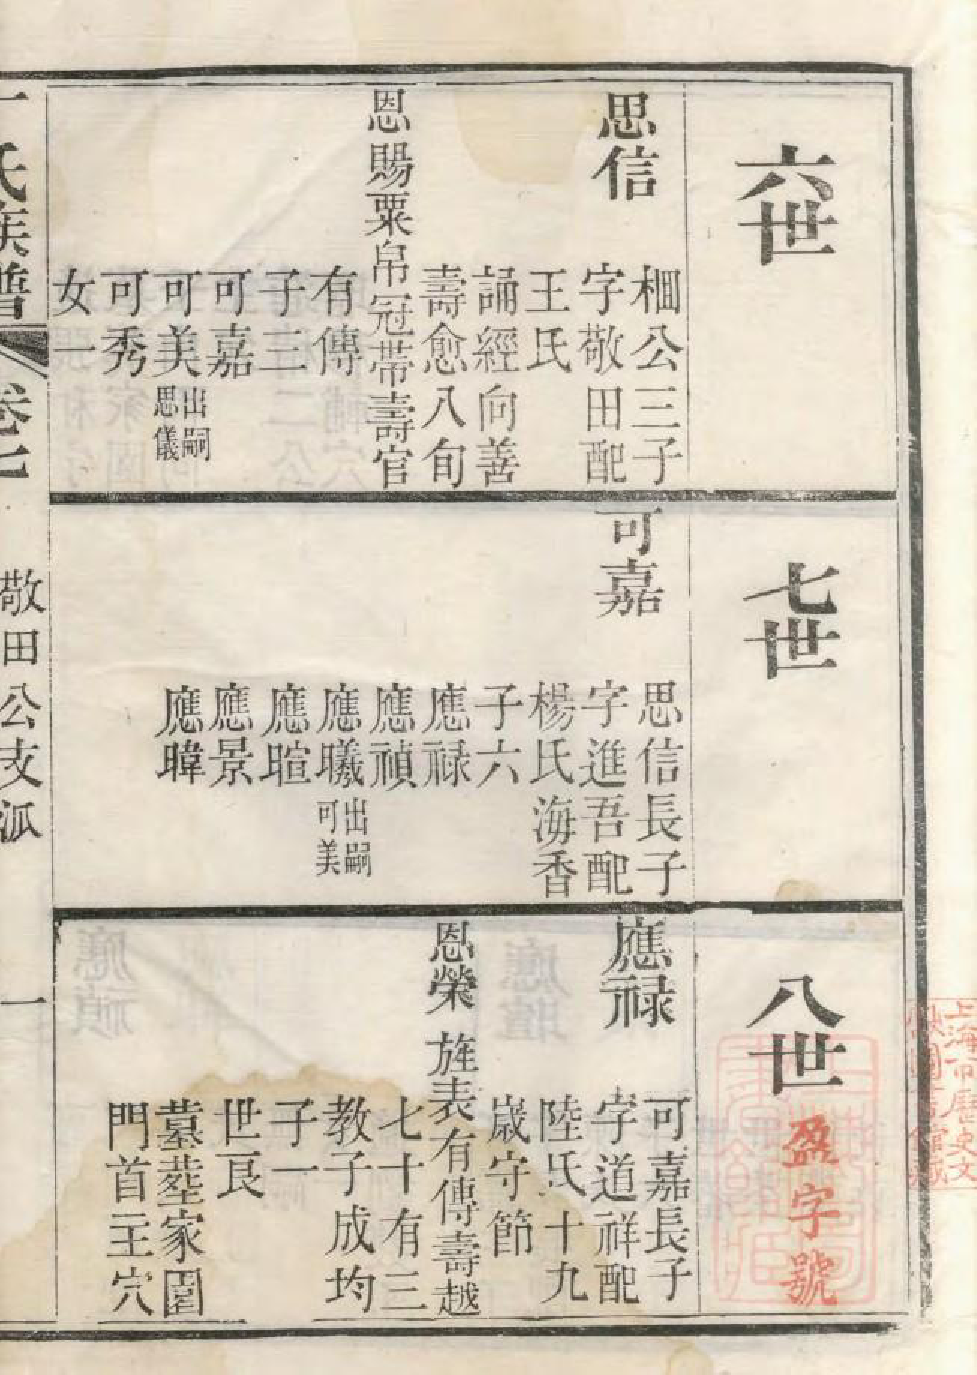 六世
思信
棞公三子
字敬田配
王氏
誦經向善
壽愈八旬
恩賜粟帛冠帶壽官
有傳
子三
可嘉
可美出嗣思儀
可秀
女一
七世
可嘉
思信長子
字進吾配
楊氏海香
子六
應禄
應禎
應曦出嗣可美
應暄
應景
應暐
八世
應禄
可嘉長子
字道祥配
陸氏十九
歲守節
恩榮旌表有傳壽越
七十有三
教子成均
子一
世良
墓塟家園
門首主穴
氏族譜
卷七
敬田公支派
一
盈字號
上海市歷史文